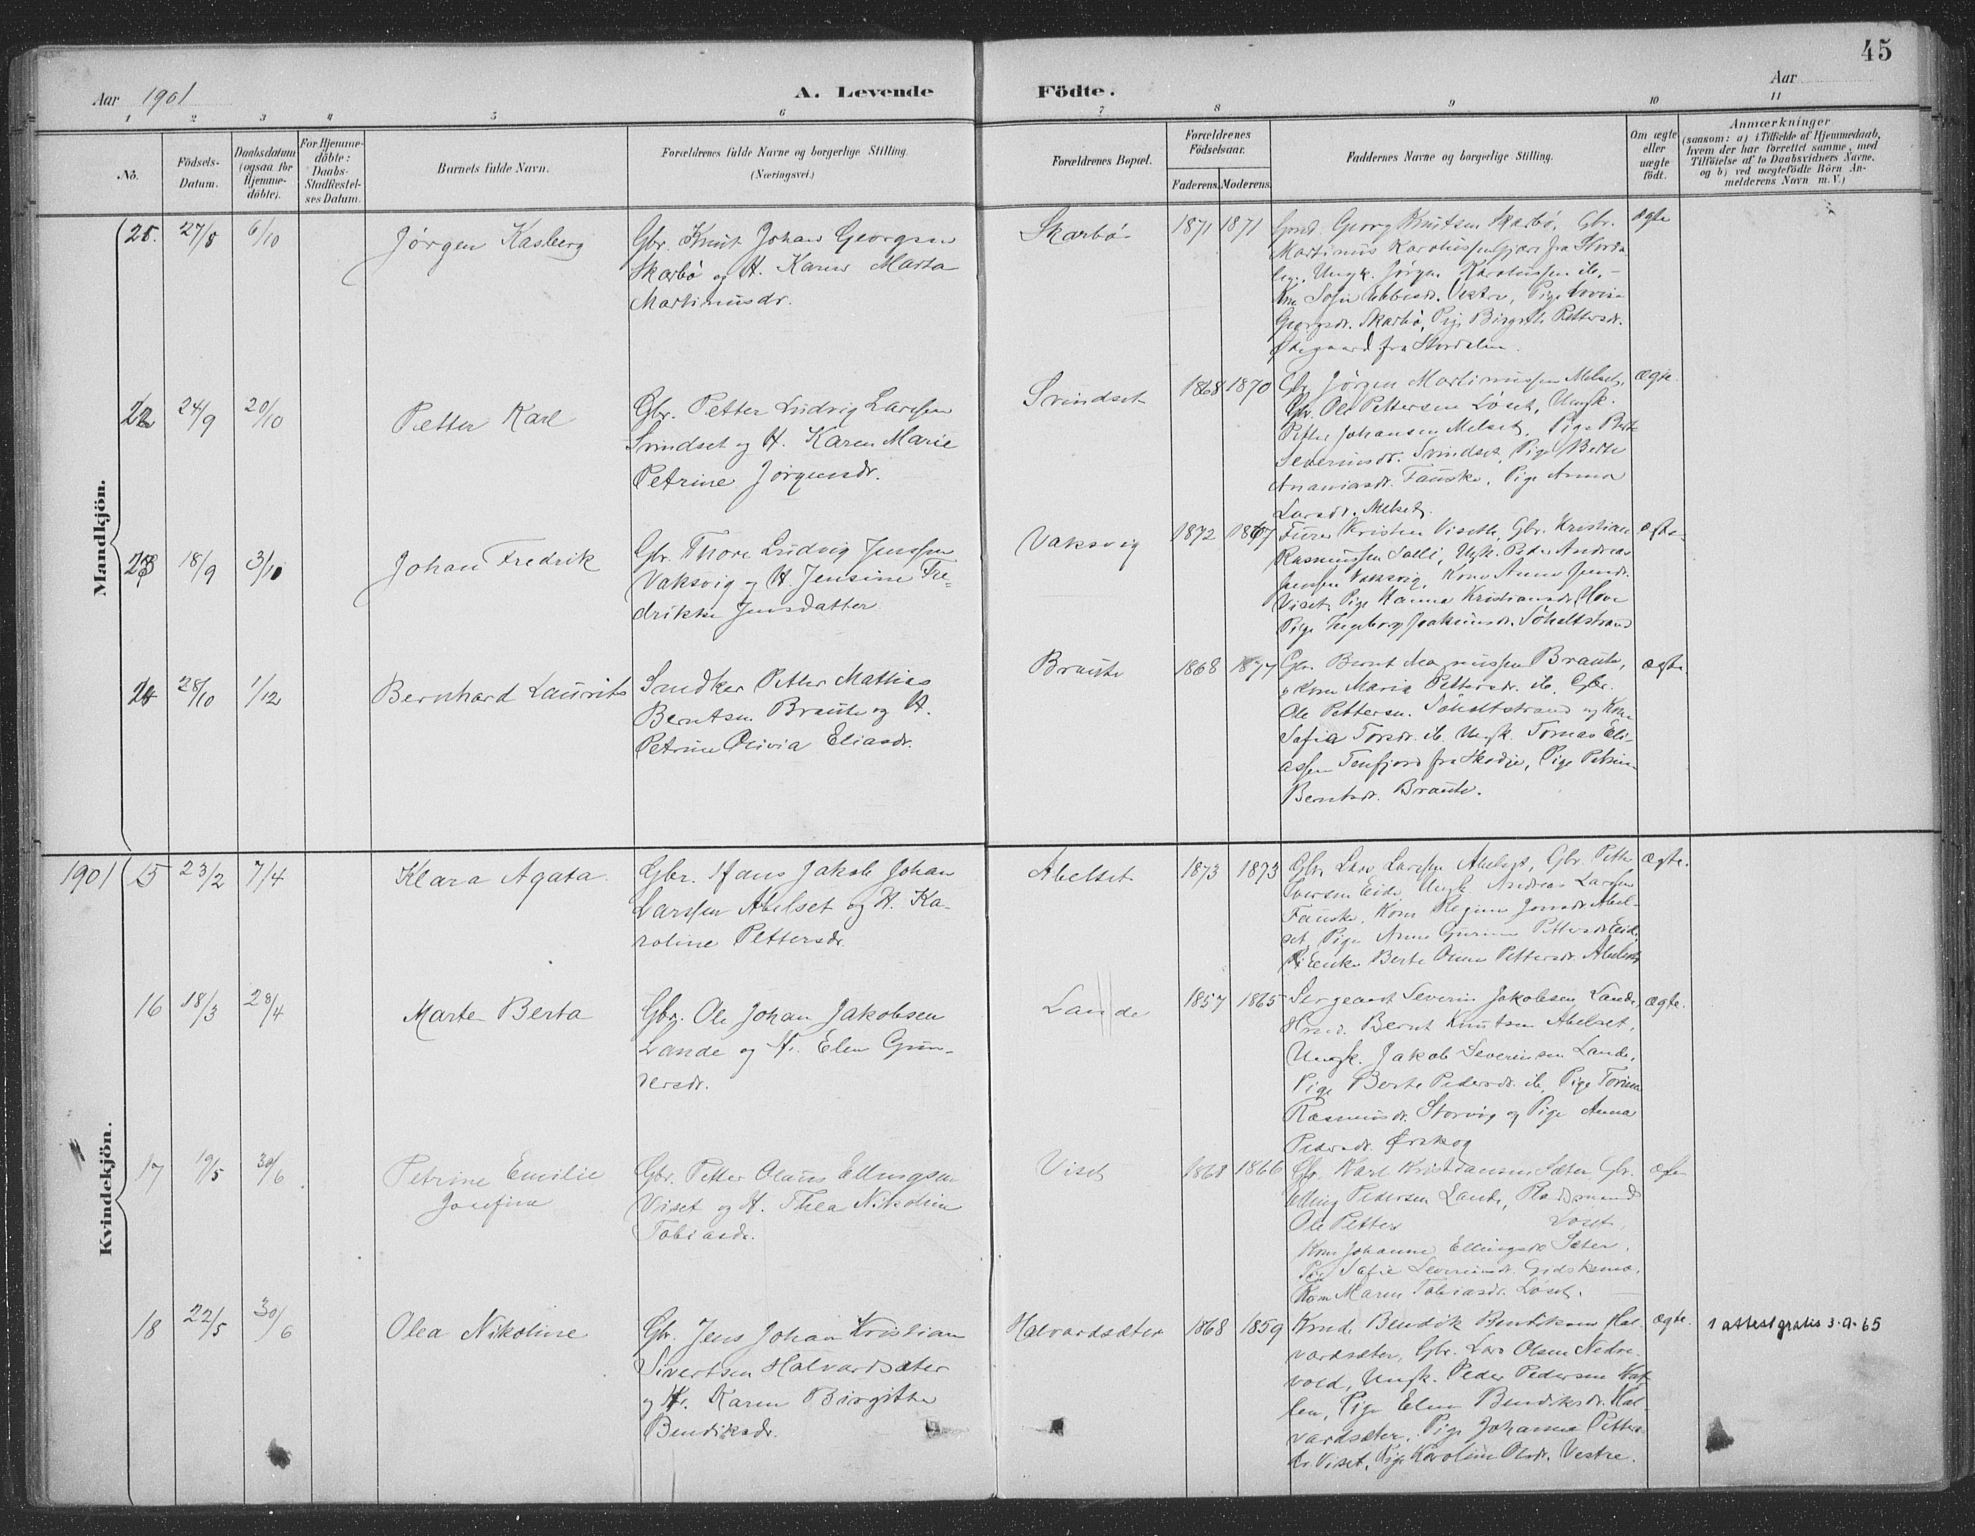 45
Aar 1901
A. Levende
Födte.
Aar
1 2 3 4 5 6 7 8 9 10 11
No.
Födsels-
Datum.
Daabsdatum
(ogsaa for
Hjemme-
döbte).
For Hjemme-
döbte:
Daabs-
Stadfæstel-
ses Datum.
Barnets fulde Navn.
Forældrenes fulde Navne og borgerlige Stilling.
(Næringsvei.)
Forældrenes Bopæl.
Forældrenes
Födselsaar.
Faderens.
Moderens.
Faddernes Navne og borgerlige Stilling.
Om ægte
eller
uægte
födt.
Anmærkninger
(saasom: a) i Tilfælde af Hjemmedaab,
hvem der har forrettet samme, med
Tilföielse af to Daabsvidners Navne,
og b) ved uægtefödte Börn An-
melderens Navn m. V.)
Mandkjön.
25. 27/8 6/10
Jørgen Kasberg
Gbr. Knut Johan Georgsen
Skarbø og H. Karen Marta
Martinusdr.
Skarbø
1871 1871
Georg Knutsen Skarbø, Gbr.
Martinus Karolussen fra Storda-
len, Ungk. Jørgen Karolussen ib.,
Kone Sofie Vestre, Pige
Georgsdr. Skarbø, Pige Birgit Pettersdr.
Øvegaard fra Stordalen.
ægte
22 24/9 20/10
Petter Karl
Gbr. Petter Ludvig Larssen
Svindset og H. Karen Marie
Petrine Jørgensdr.
Svindset
1868 1870
Gbr. Jørgen Martinussen Melset,
Gbr. Ole Pettersen Løset, Ungk.
Petter Johansen Melset, Pige Berte
Severinsdr. Svindset, Pige Berte
Ananiasdr. Fauske, Pige Anna
Larsdr. Melset.
ægte.
23 18/9 3/10
Johan Fredrik
Gbr. Thore Ludvig Jenssen
Vaksvig og H. Jensine Fre-
drikke Jensdatter.
Vaksvig
1872 1867
Kristen Viset, Gbr. Kristian
Rasmussen, Ungk. Peder Andreas
Jenssen Vaksvig, Kone Anna Jensdr.
Viset, Pige Hanna Kristiansdr. Hove
Pige Ingeborg Joakimsdr. Søholtstrand
ægte
24 28/10 1/12
Bernhard Laurits
Snedker Petter Mathias
Berntsen Braute og H.
Petrine Olivia Eliasdr.
Braute
1868 1877
Gbr. Bernt Magnussen Braute,
Kone Maria Pettersdr. ib., Gbr.
Ole Pettersen Søholtstrand og Kone
Sofia Torsdr. ib. Ungk. Tomas Eli-
assen Tenfjord fra Skodje, Pige Petrine
Berntsdr. Braute.
ægte
Kvindekjön.
1901
15 23/2 7/4
Klara Agata.
Gbr. Hans Jakob Johan
Larssen Abelset og H. Ka-
roline Pettersdr.
Abelset
1873 1873
Gbr. Lars Larssen Abelset, Gbr. Petter
Iversen Eide, Ungk. Andreas Larsen
Fauske, Kone Regine Jonsdr. Abel-
set, Pige Anne Gurine Pettersdr. Eide
Enke Berte Oline Pettersdr. Abelset
ægte.
16 18/3 28/4
Marte Berta
Gbr. Ole Johan Jakobsen
Lande og H. Elen Gun-
nersdr.
Lande
1857 1865
Sergeant Severin Jakobsen Lande,
Hmd. Bernt Knutsen Abelset,
Ungk. Jakob Severinsen Lande,
Pige Berte Pedersdr. ib, Pige Torina
Rasmusdr. Storvig og Pige Anna
Pedersdr. Ørskog
ægte.
17 19/5 30/6
Petrine Emilie
Josefina
Gbr. Petter Olaus Ellingsen
Viset og H. Thea Nikoline
Tobiasdr.
Viset
1868 1866
Gbr. Karl Kristiansen Sæter, Gbr.
Elling Pedersen Lande,
Ole Petter Løset,
Kone Johanne Ellingsdr. Sæter,
Pige Sofie Severinsdr.
Kone Maren Tobiasdr. Løset.
ægte
18 22/5 30/6
Olea Nikoline
Gbr. Jens Johan Kristian
Sivertsen Halvardsæter
og H. Karen Birgitte
Bendiksdr.
Halvardsæter
1868 1859
Bendik Bendiksen Hal-
vardsæter, Gbr. Lars Olsen Nedre-
vold, Ungk. Peder Pedersen
Pige Elen Bendiksdr. Hal-
vardsæter, Pige Johanna Petters-
dr. Viset, Pige Karoline Olsdr. Vestre.
ægte.
1 attest gratis 3-9-65